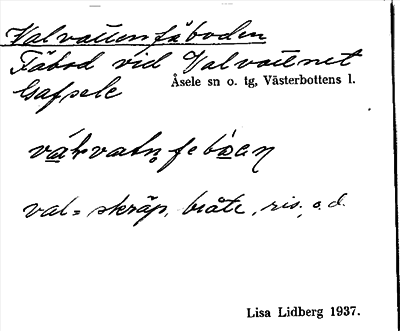 Valvattenfäboden
Fäbod vid Valvattnet
Åsele sn o. tg, Västerbottens l.
Gafsele
val = skräp, bråte, ris, o.d.
Lisa Lidberg 1937.